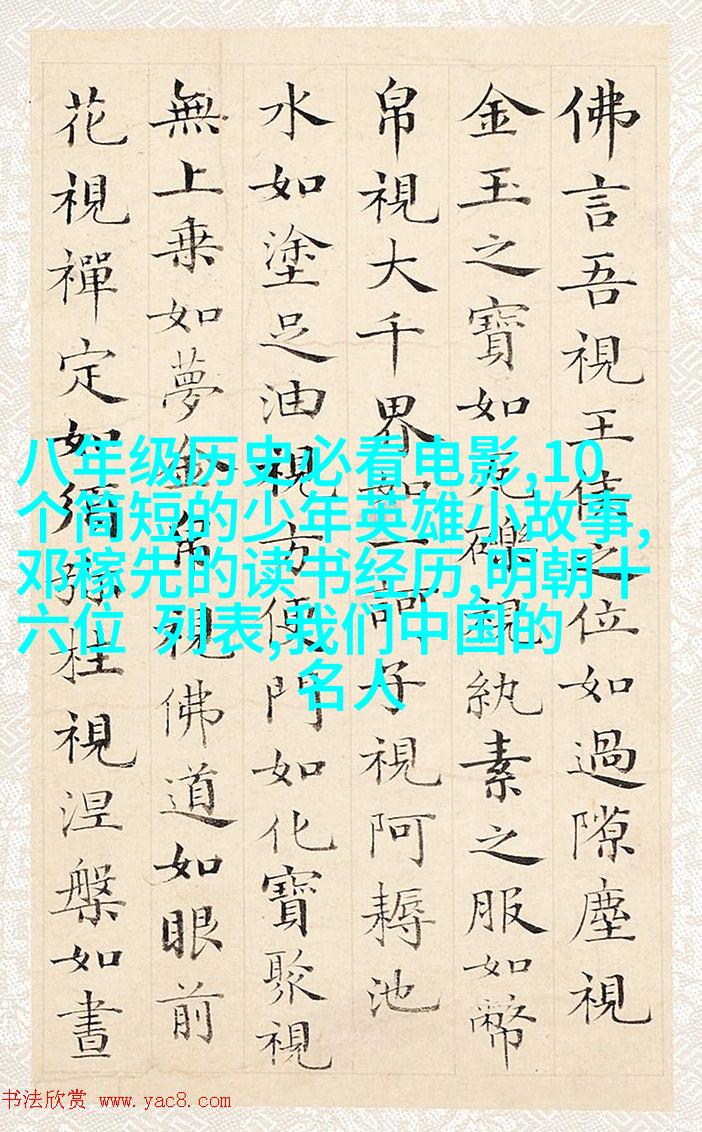 佛言吾視王侯之位如過隙塵視
金玉之寶如瓦礫視紈素之服如幣
帛視大千界如一訶子視阿耨池
水如塗足油視方便門如化寶聚視
無上乗如夢金帛視佛道如眼前
花視禪定如須弥柱視涅槃如晝
八年级历史必看电影,10
个简短的少年英雄小故事,
邓稼先的读书经历,明朝十
六位 列表,我们中国的
名人
书法欣赏 www.yac8.com